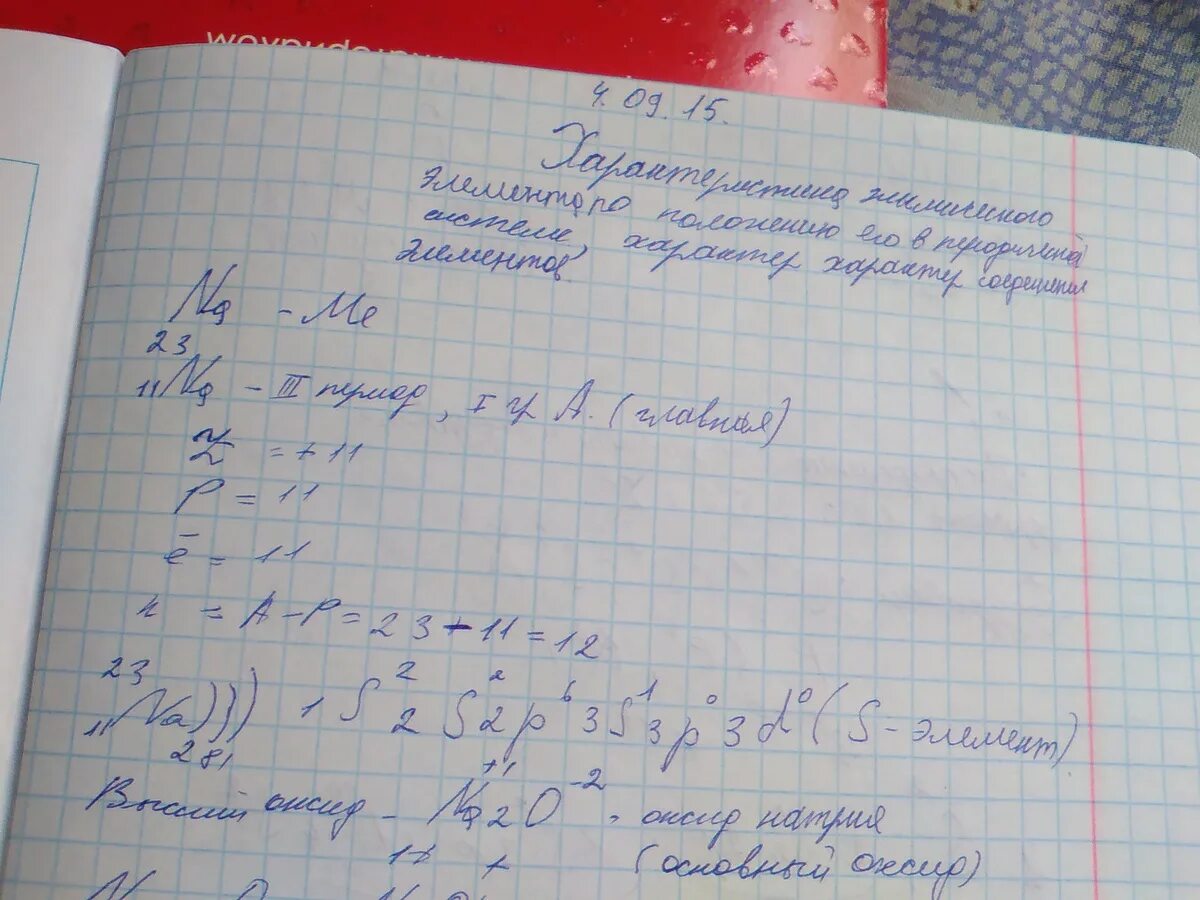 4.09.15.
Характеристика химического
элемента по положению его в периодической
системе, характер характер соединения
элементов.
Na - Me
23
11Na - III период, I гр A. (главная)
Z = +11
P = 11
ē = 11
n = A - P = 23 - 11 = 12
23
11Na))) 1S² 2S² 2p⁶ 3S¹ 3p⁰ 3d⁰ (S-элемент)
281
Высший оксид - Na⁺¹2O⁻² - оксид натрия
(основный оксид)